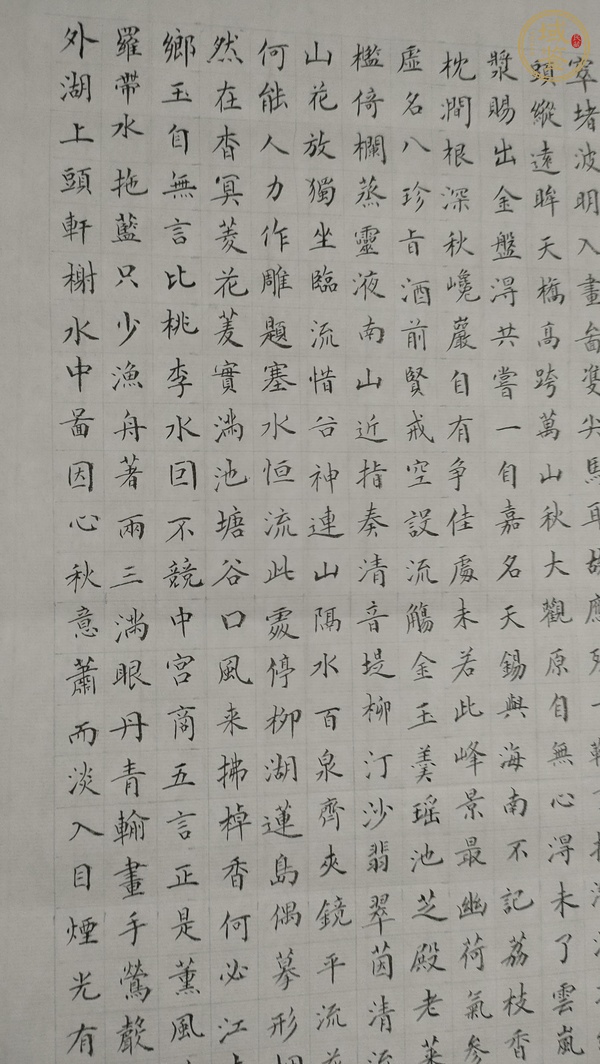 窣堵波明入畫啚雙尖馬耳故應殊一
頭縱遠眸天橋高跨萬山秋大觀原自無心淂未了雲嵐
漿賜出金盤淂共嘗一自嘉名天錫與海南不記荔枝香
枕澗根深秋巉巖自有争佳處未若此峰景最幽荷氣參
虛名八珍旨酒前賢戒空設流觴金玉羹瑶池芝殿老萊
檻倚欄蒸靈液南山近指奏清音堤柳汀沙翡翠茵清流
山花放獨坐臨流惜谷神連山隔水百泉齊夾鏡平流
何能人力作雕題塞水恒流此處停柳湖蓮島偶摹形
然在杳冥菱花菱實滿池塘谷口風来拂棹香何必江
鄉玉自無言比桃李水回不競中宮商五言正是薰風
羅帶水拖藍只少漁舟著兩三滿眼丹青輸畫手鶯聲
外湖上頭軒榭水中啚因心秋意蕭而淡入目煙光有